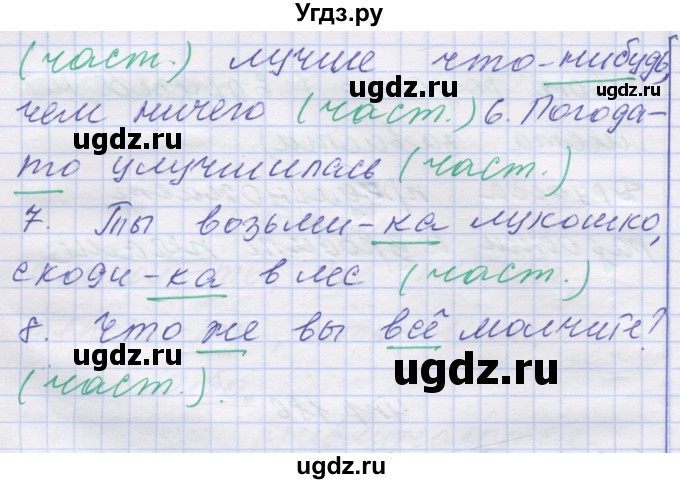 Угдз.ру
(част.) лучше что-нибудь,
чем ничего (част.) 6. Погода-
то улучшилась (част.)
7. Ты возьми-ка лукошко,
сходи-ка в лес (част.)
8. Что же вы всё молчите?
(част.).
ugdz.ru
ugdz.ru
ugdz.ru
ugdz.ru
ugdz.ru
ugdz.ru
ugdz.ru
ugdz.ru
ugdz.ru